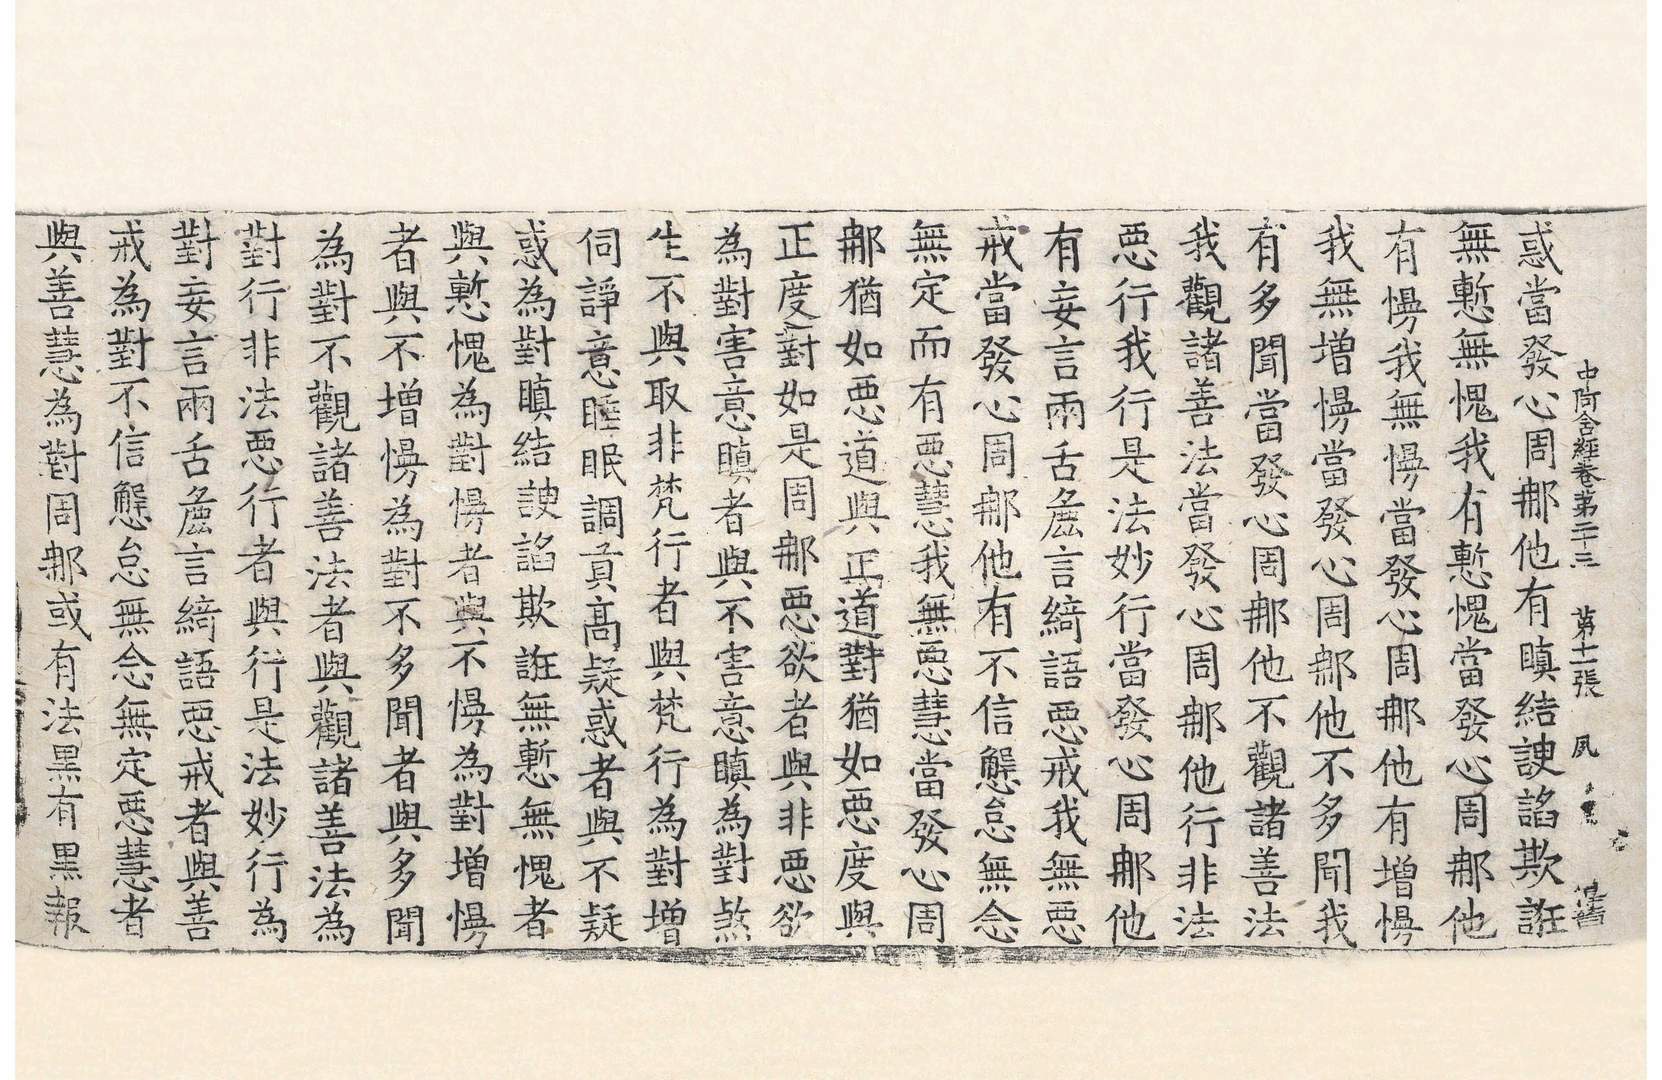 中阿含經卷第二十三　第十一張　夙
惑當發心周那他有瞋結諛諂欺誑
無慙無愧我有慙愧當發心周那他
有慢我無慢當發心周那他有增慢
我無增慢當發心周那他不多聞我
有多聞當發心周那他不觀諸善法
我觀諸善法當發心周那他行非法
惡行我行是法妙行當發心周那他
有妄言兩舌麁言綺語惡戒我無惡
戒當發心周那他有不信懈怠無念
無定而有惡慧我無惡慧當發心周
那猶如惡道與正道對猶如惡度與
正度對如是周那惡欲者與非惡欲
為對害意瞋者與不害意瞋為對煞
生不與取非梵行者與梵行為對增
伺諍意睡眠調貢高疑惑者與不疑
惑為對瞋結諛諂欺誑無慙無愧者
與慙愧為對慢者與不慢為對增慢
者與不增慢為對不多聞者與多聞
為對不觀諸善法者與觀諸善法為
對行非法惡行者與行是法妙行為
對妄言兩舌麁言綺語惡戒者與善
戒為對不信懈怠無念無定惡慧者
與善慧為對周那或有法黑有黑報